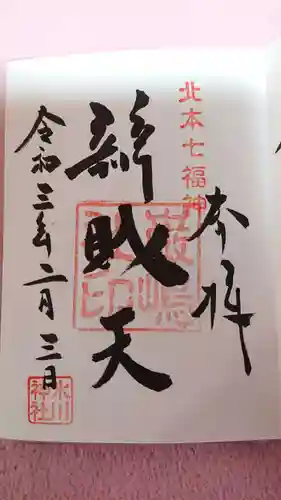 北本七福神
奉拝
辨財天
令和三年二月三日
氷川神社